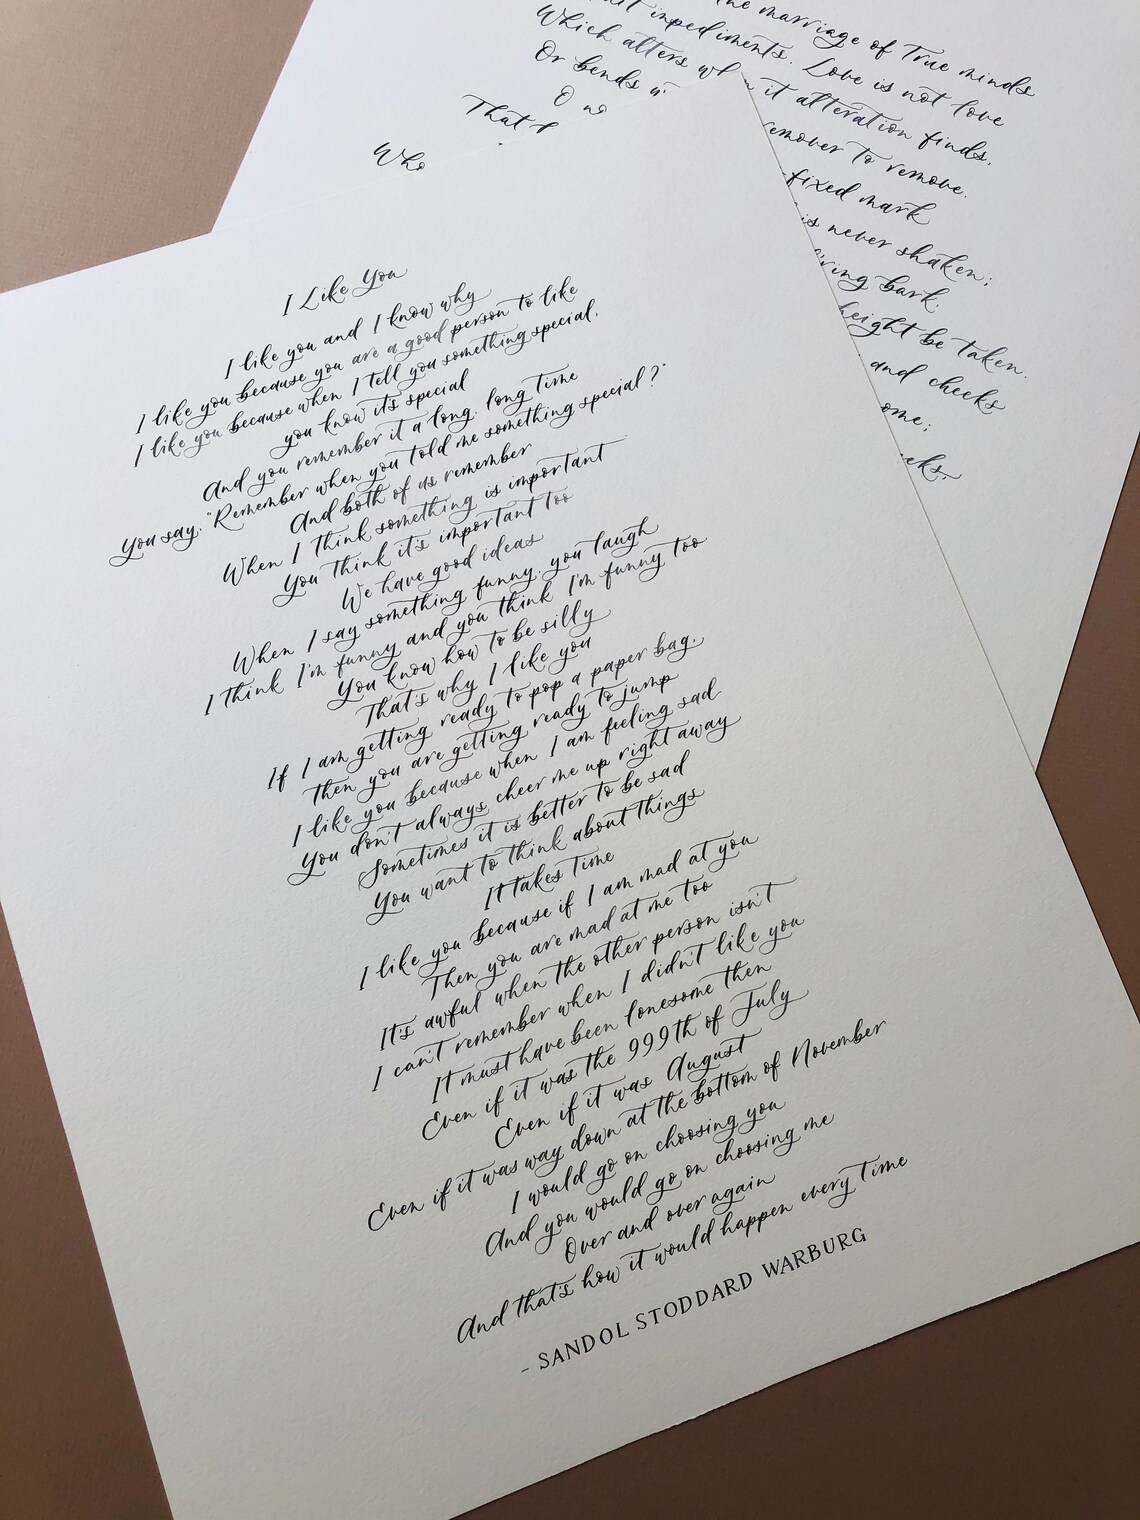 the marriage of True minds
impediments. Love is not love
Which alters it alteration finds,
Or bends
That
remover to remove.
-fixed mark
is never shaken;
bark,
height be taken.
and cheeks
I Like You
I like you and I know why
I like you because you are a good person to like
I like you because when I tell you something special,
you know it's special
And you remember it a long, long time
You say, "Remember when you told me something special?"
And both of us remember
When I think something is important
You think it's important too
We have good ideas
When I say something funny, you laugh
I think I'm funny and you think I'm funny too
You know how to be silly
That's why I like you
If I am getting ready to pop a paper bag,
Then you are getting ready to jump
I like you because when I am feeling sad
You don't always cheer me up right away
Sometimes it is better to be sad
You want to think about things
It takes time
I like you because if I am mad at you
Then you are mad at me too
It's awful when the other person isn't
I can't remember when I didn't like you
It must have been lonesome then
Even if it was the 999th of July
Even if it was August
Even if it was way down at the bottom of November
I would go on choosing you
And you would go on choosing me
Over and over again
And that's how it would happen every time
- SANDOL STODDARD WARBURG